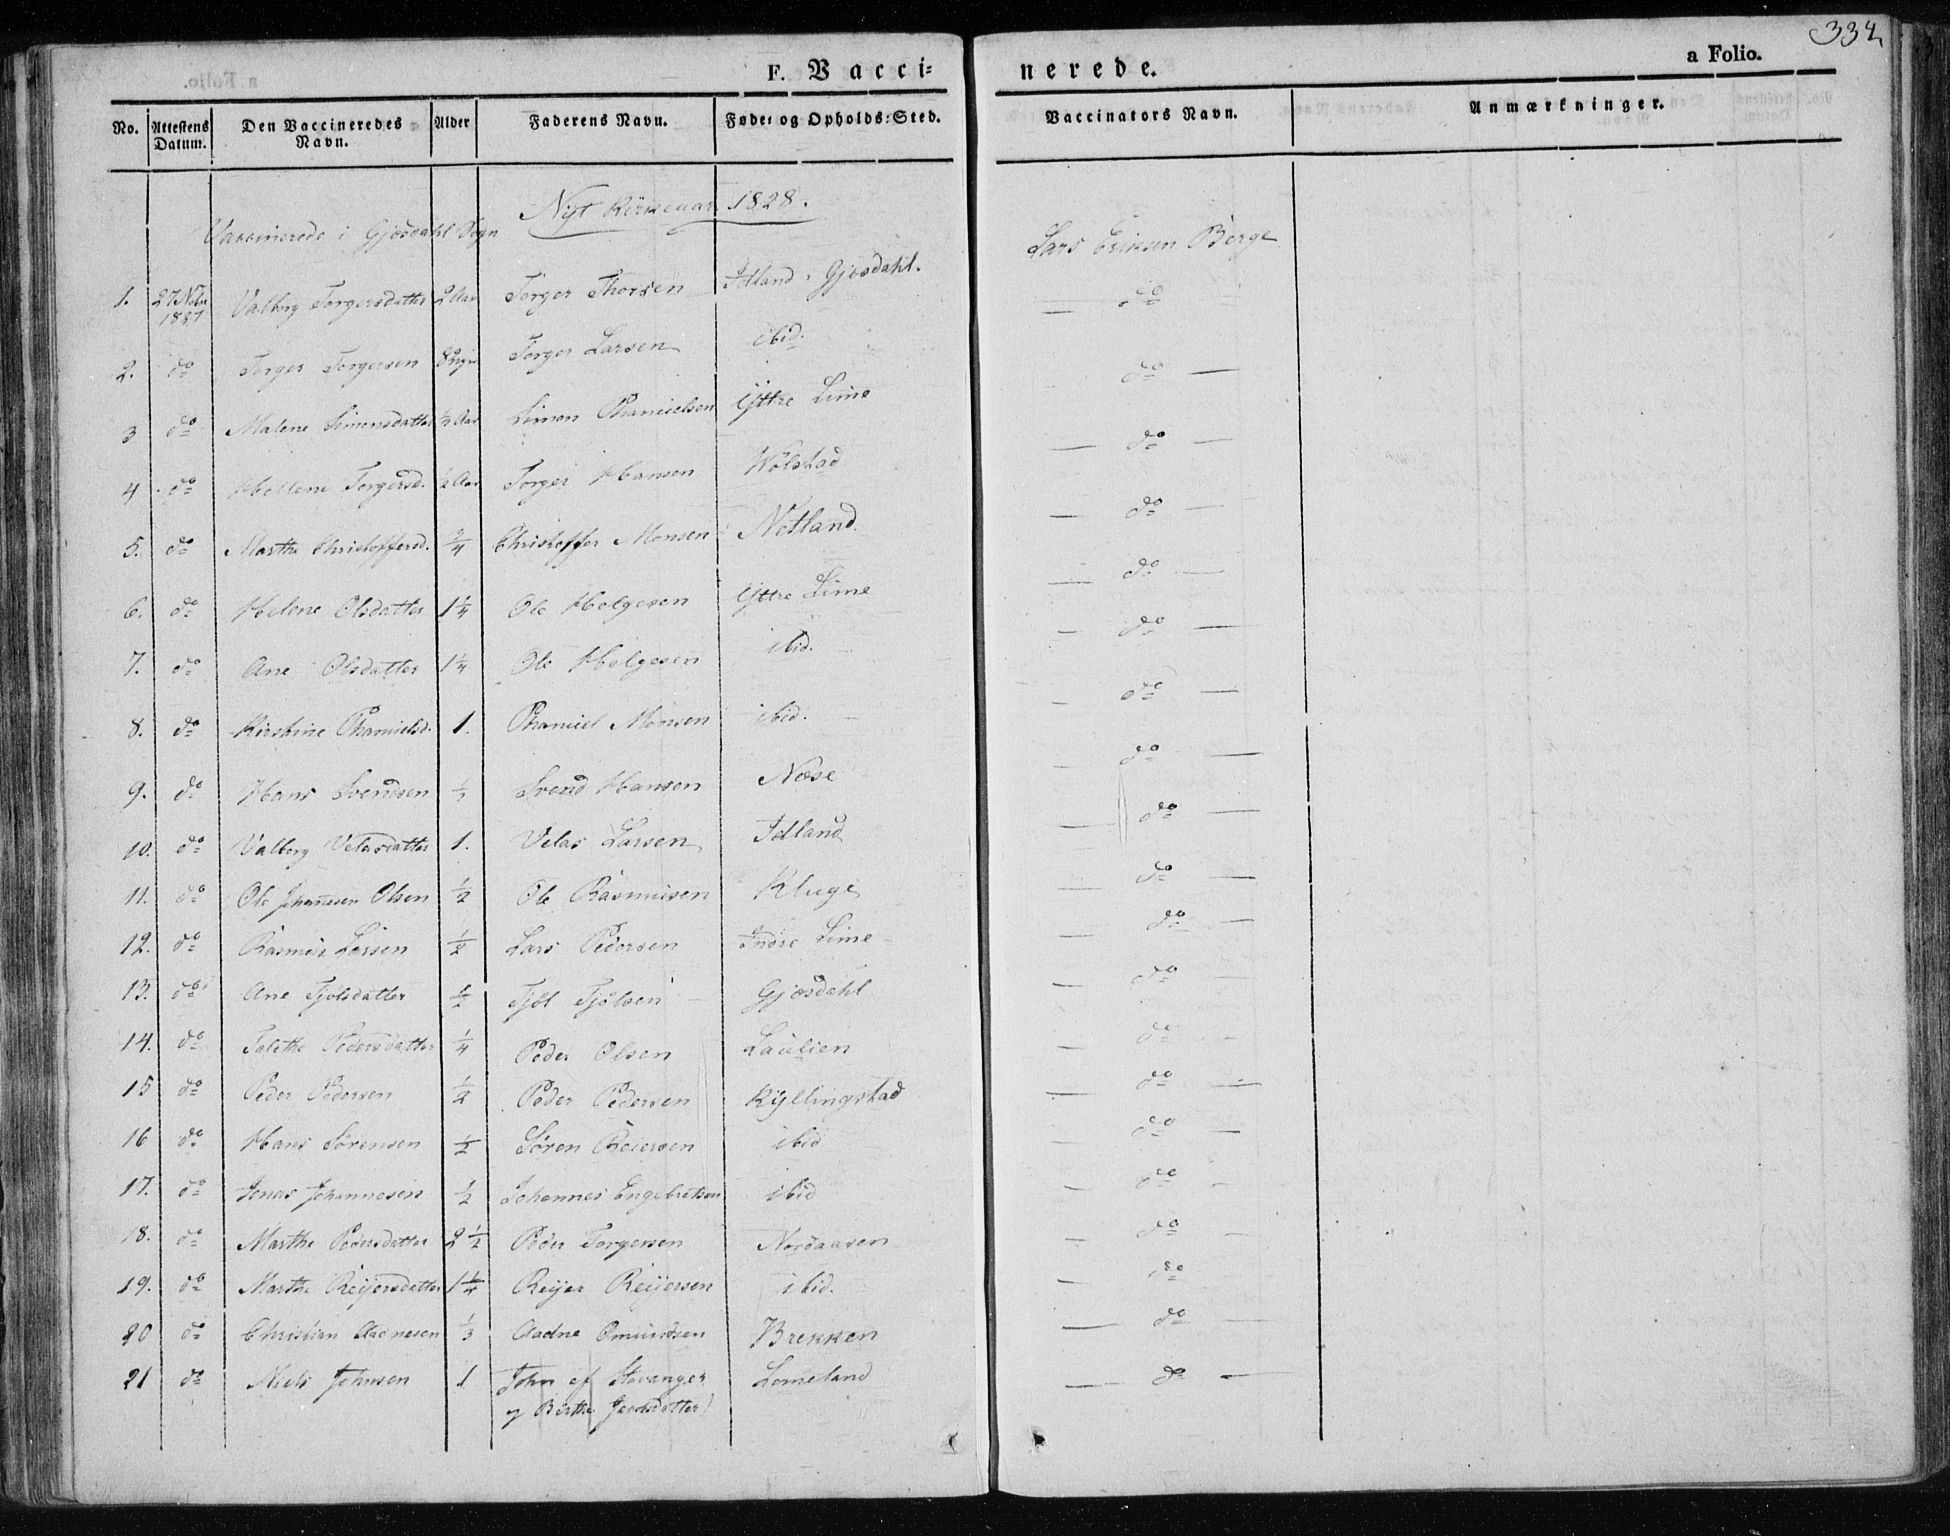 334
F. Vacci=
nerede.
a Folio.
No. Attestens Datum. Den Vaccineredes Navn. Alder Faderens Navn. Føde= og Opholds=Sted. Vaccinators Navn. Anmærkninger.
Nyt Kirkeaar 1828.
Vaccinerede i Gjæsdahl Sogn
Lars Eriksen Berge
1. 27 Novbr 1827 Valborg Torgersdatter 2 Aar Torger Thorsen Idland i Gjæsdahl. — do
2. do Torger Torgersen Torger Larsen ibid. do —
3 do Malene Simonsdatter ½ Aar Simon Thamielsen Yttre Lime — do —
4 do Hellene Torgersd. ½ Aar Torger Hansen Wolstad — do —
5. do Marthe Christoffersd. ¾ Christoffer Monsen Netland. — do —
6. do Helene Olsdatter 1¼ Ole Helgesen Yttre Lime — do —
7. do Ane Olsdatter 1¼ Ole Helgesen ibid. — do —
8. do Kirstine Thamielsd. 1. Thamiel Monsen ibid. — do —
9. do Hans Svendsen ½ Svend Hansen Næse — do —
10. do Valborg Velasdatter 1. Velas Larsen Idland — do —
11. do Ole Johannesen Olsen ½ Ole Rasmusen Kluge — do —
12. do Rasmus Larsen ½ Lars Pedersen Indre Lime — do —
13. do Ane Tjølsdatter ½ Tjøl Tjølsen Gjæsdahl — do —
14. do Talette Pedersdatter ¼ Peder Olsen Laulien — do —
15 do Peder Pedersen ½ Peder Pedersen Kyllingstad — do —
16 do Hans Sørensen ½ Søren Pedersen ibid — do —
17. do Jonas Johannesen ½ Johannes Engebretsen ibid — do —
18. do Marthe Pedersdatter 2½ Peder Torgersen Nordaasen — do —
19. do Marthe Reijersdatter 1¼ Reijer Reijersen ibid. — do —
20 do Christian Aadnesen ⅓ Aadne Omundsen Brekken — do —
21 do Niels Johnsen 1 John af Stavanger Lomeland — do —
og Birthe